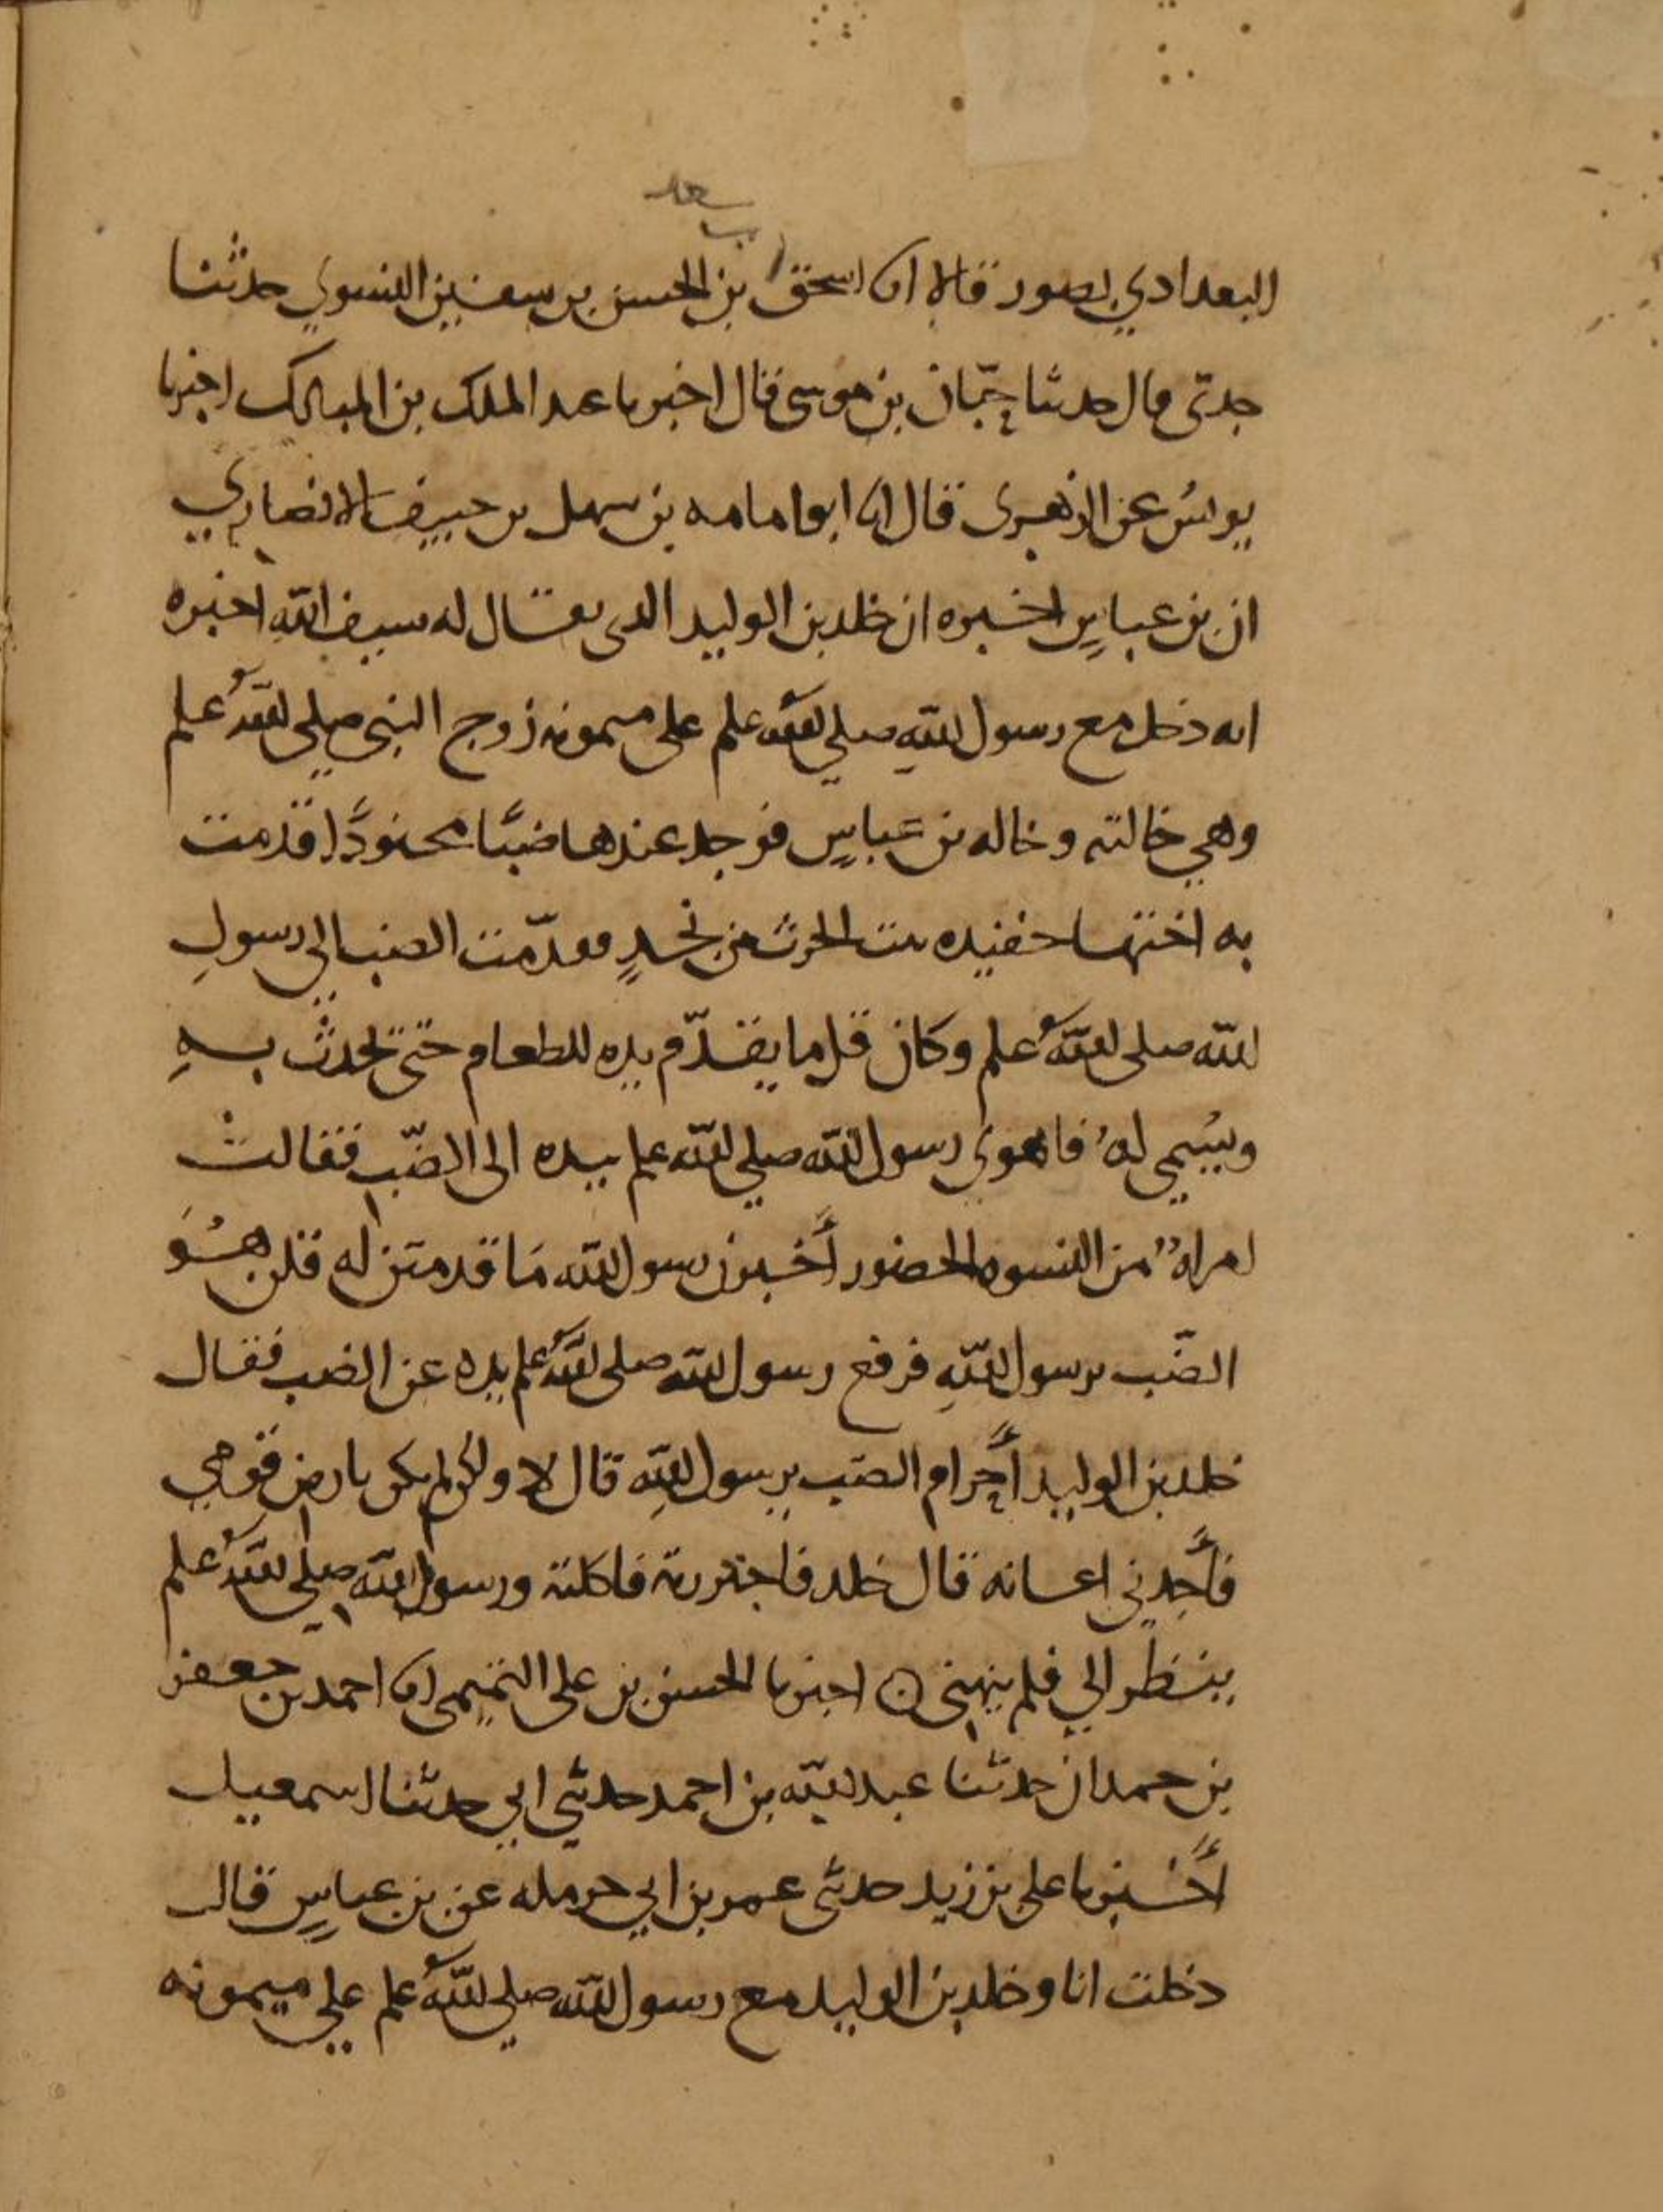 بن سعد
البغدادي بصور قالا انا اسحق بن الحسن بن سفين النسوي حدثنا
جدي قال حدثنا حبّان بن موسى قال اخبرنا عبد الملك بن المبارك اخبرنا
يونس عن الزهري قال انا ابو امامه بن سهل بن حنيف الانصاري
ان بن عباسٍ اخبره ان خلد بن الوليد الذي يقال له سيف اللهِ اخبره
انه دخل مع رسول اللهِ صلى الله علم على ميمونه زوج النبي صلي اللهُ علم
وهي خالته وخاله بن عباسٍ فوجد عندها ضبًّا محنوذًا قدمت
به اختها حفيده بنت الحرث من نجدٍ فقدّمت الضب الي رسولِ
الله صلى اللهُ علم وكان قل ما يقدّم يده للطعام حتّى يحدث بهِ
ويسُمي لهُ فاهوي رسول الله صلي الله علم بيده الى الضّب فقالت
امراهٌ من النسوه الحضور أخبرن رسول الله مَا قدمتن له قلن هُوَ
الضّب يرسول اللهِ فرفع رسول الله صلى اللهُ علم يده عن الضب فقال
خلد بن الوليد أحرام الضب يرسول اللهِ قال لا ولكن لم يكن بارض قومي
فأجدني اعافه قال خلد فاجتررته فاكلته ورسول الله صلي اللهُ علم
ينظر الي فلم ينهني ن اخبرنا الحسن بن على التميمى انا احمد بن جعفر
بن حمدان حدثنا عبد الله بن احمد حدثني ابي حدثنا اسمعيل
أخبرنا علي بن زيد حدثنى عمر بن ابي حرمله عن بن عباسٍ قال
دخلت انا وخلد بن الوليد مع رسول الله صلي اللهُ علم علي ميمونه